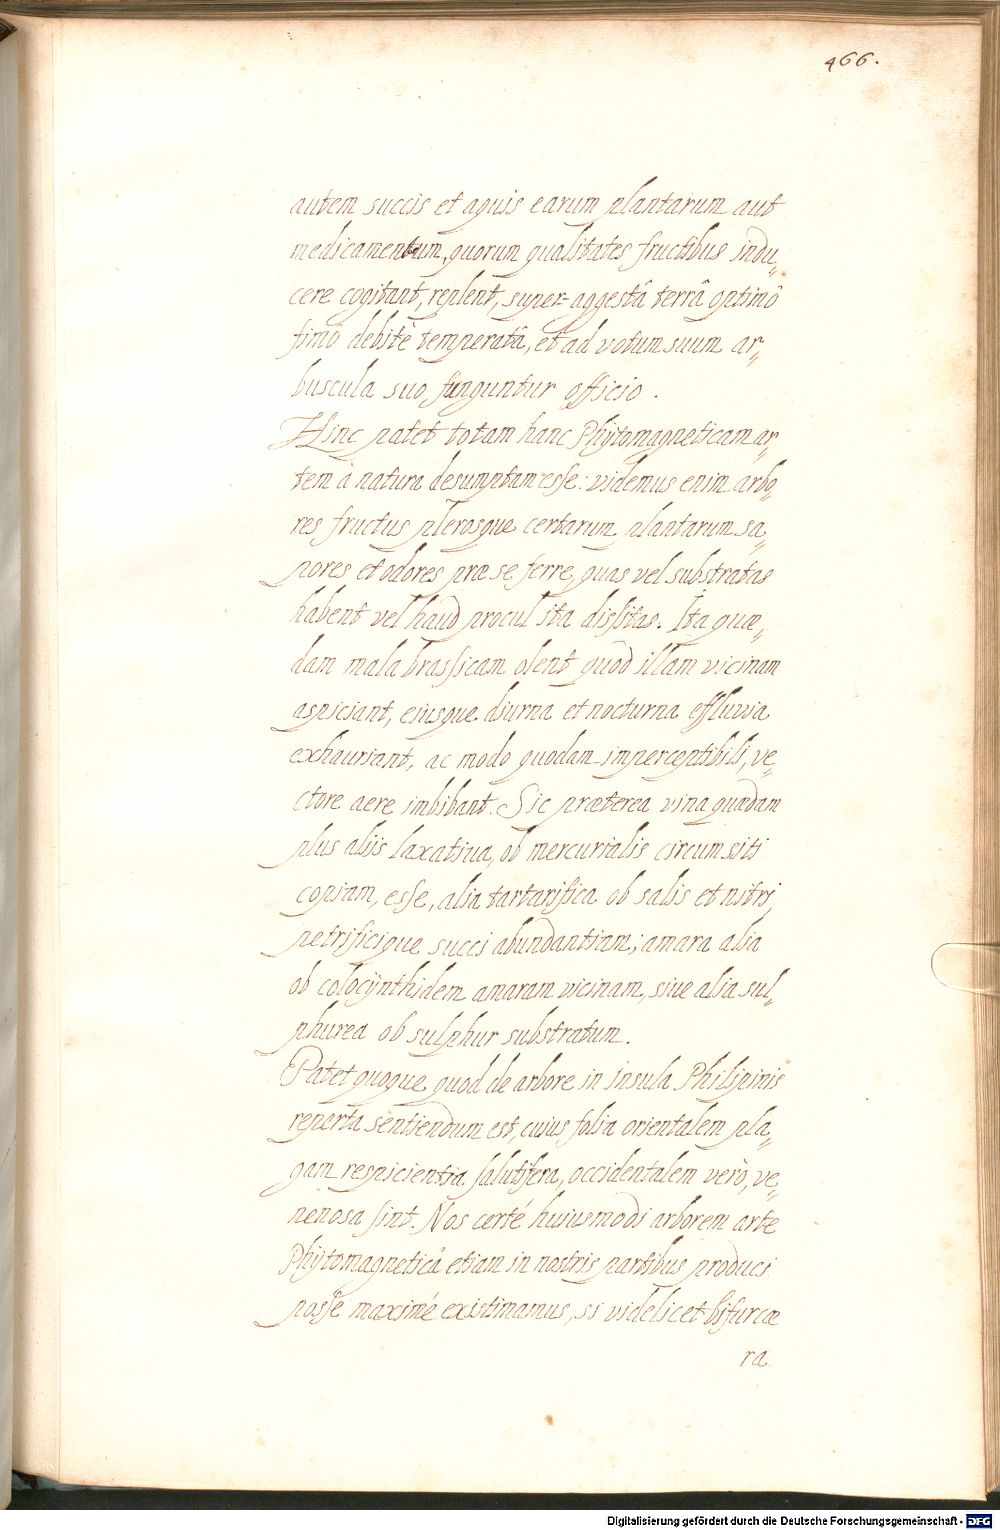 466.
autem succis et aquis earum plantarum aut
medicamentum, quorum qualitates fructibus indu„
cere cogitant, replent, super-aggestâ terrâ optimô
fimô debitè temperatâ, et ad votum suum ar„
buscula suo, funguntur officio.
Hinc patet totam hanc Phÿtomagneticam ar„
tem à natura desumptam esse: videmus enim arbo„
res fructus plerosque certarum plantarum sa„
pores et odores præ se ferre, quas vel substratas
habent vel haud procul ita dissitas. Ita quæ„
dam mala brassicam olent quod illam vicinam
aspiciant, eiusque diurna et nocturna effluvia
exhauriant, ac modo quodam imperceptibili, ve„
ctore aere imbibant. Sic præterea vina quædam
plus aliis laxativa, ob mercurialis circumsiti
copiam, esse, alia tartarifica ob salis et nitri,
petrificique succi abundantiam; amara alia
ob colocÿnthidem amaram vicinam, sive alia sul„
phurea ob sulphur substratum.
Patet quoque quod de arbore in insula Philipinis
reperta sentiendum est, cuius folia orientalem pla„
gam respicientia salutifera, occidentalem verò, ve„
nenosa sint. Nos certé huiusmodi arborem arte
Phÿtomagneticâ etiam in nostris partibus produci
posse maximé existimamus, si videlicet bifurcæ
ra
Digitalisierung gefördert durch die Deutsche Forschungsgemeinschaft - DFG